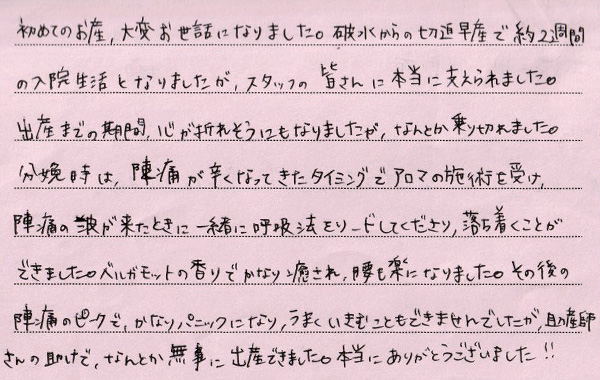 初めてのお産，大変お世話になりました。破水からの切迫早産で約2週間
の入院生活となりましたが，スタッフの皆さんに本当に支えられました。
出産までの期間，心が折れそうにもなりましたが，なんとか乗り切れました。
分娩時は，陣痛が辛くなってきたタイミングでアロマの施術を受け，
陣痛の波が来たときに一緒に呼吸法をリードしてくださり，落ち着くことが
できました。ベルガモットの香りでかなり癒され，腰も楽になりました。その後の
陣痛のピークで，かなりパニックになり，うまくいきむこともできませんでしたが，助産師
さんの助けで，なんとか無事に出産できました。本当にありがとうございました!!